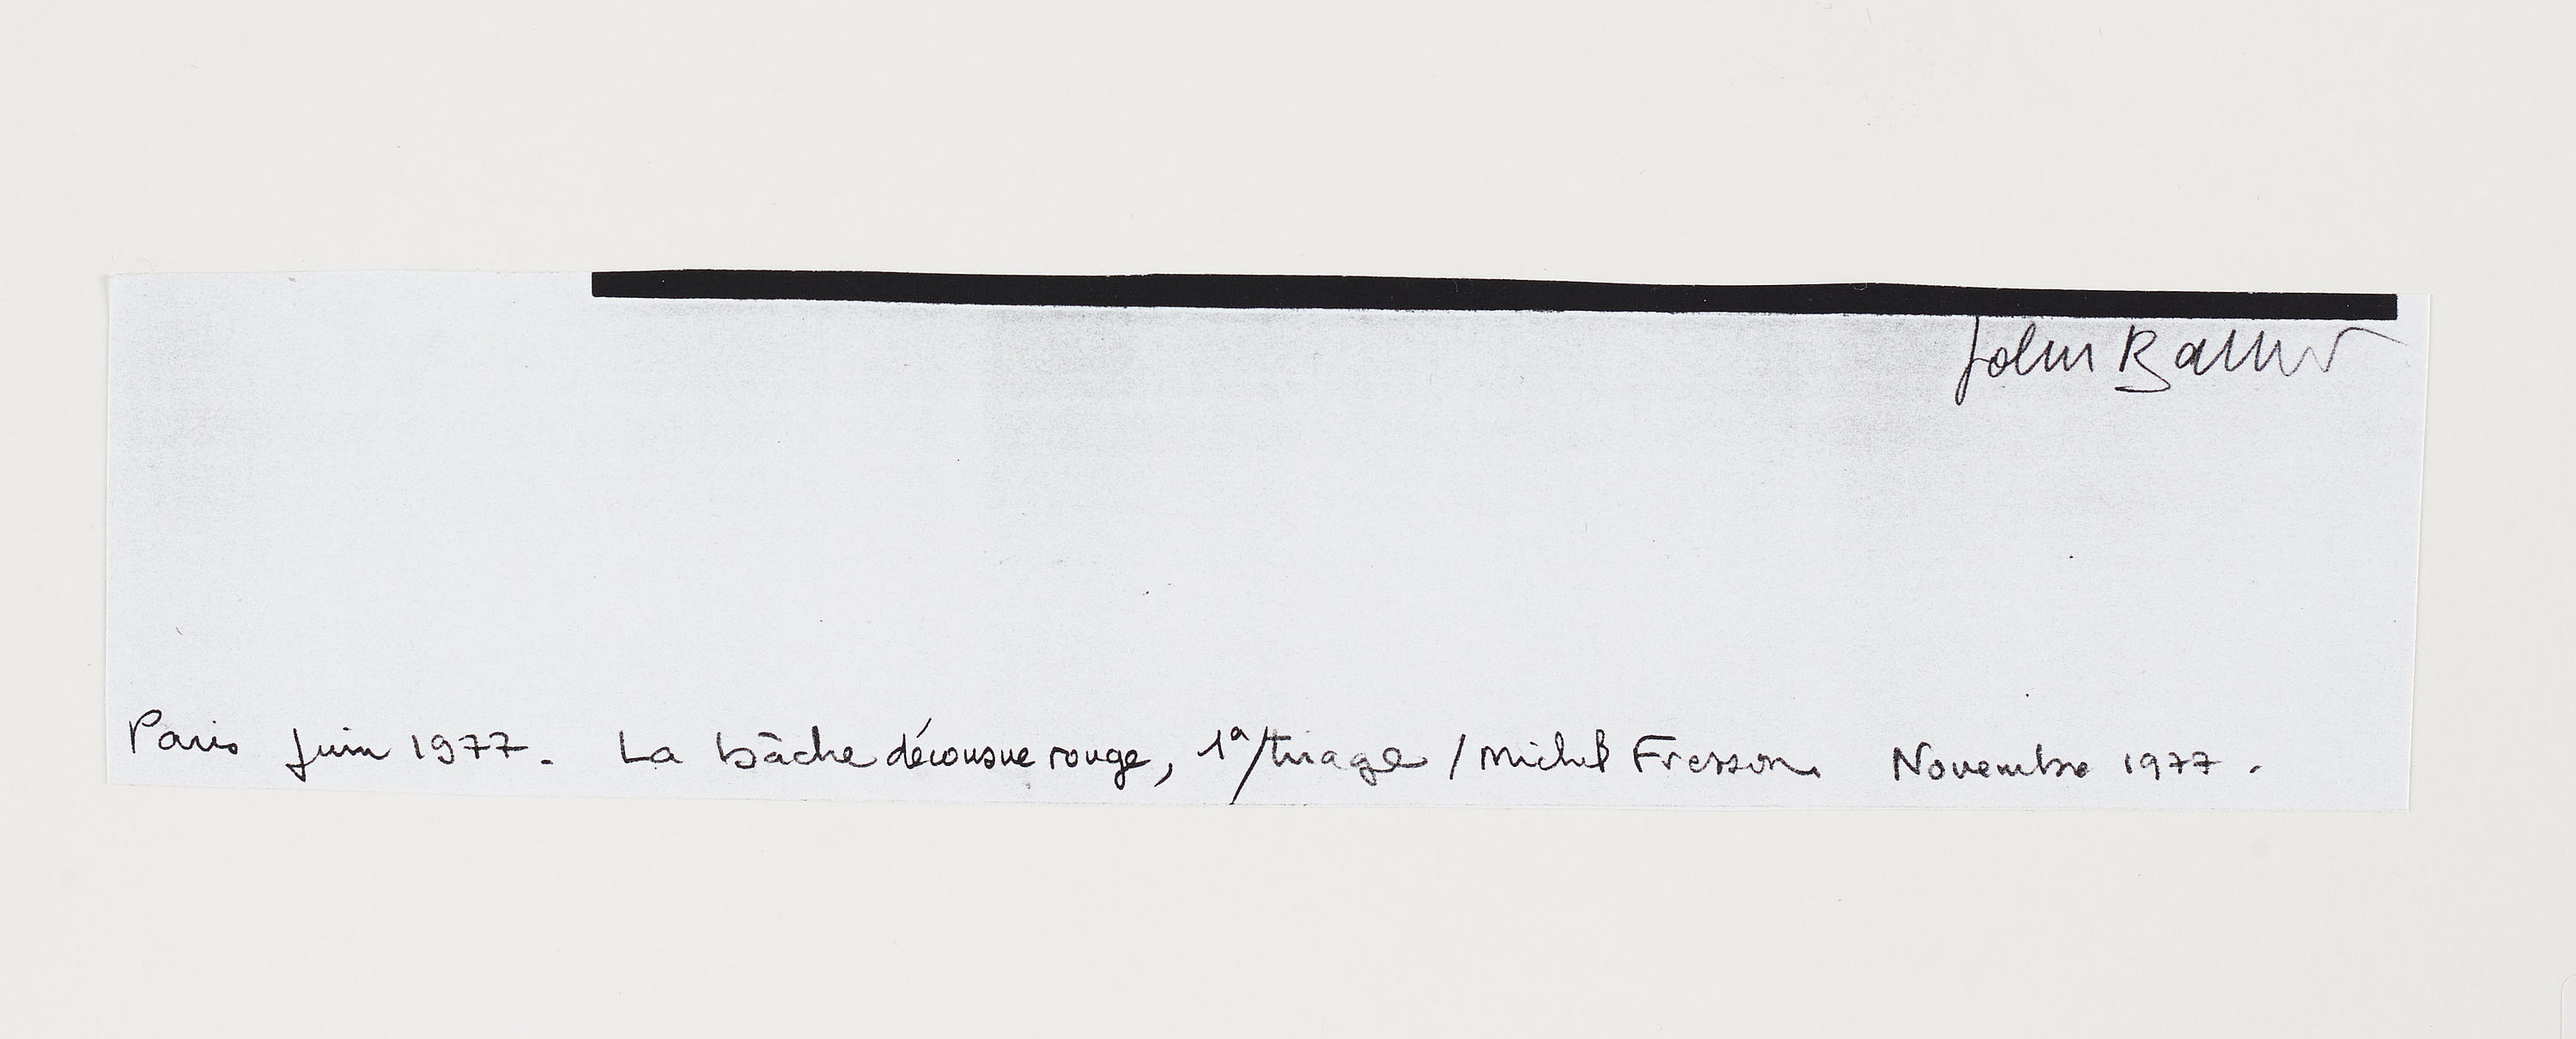 John Batho
Paris Juin 1977. La bâche décousue rouge, 1ᵃ/tirage / Michel Fresson. Novembre 1977.